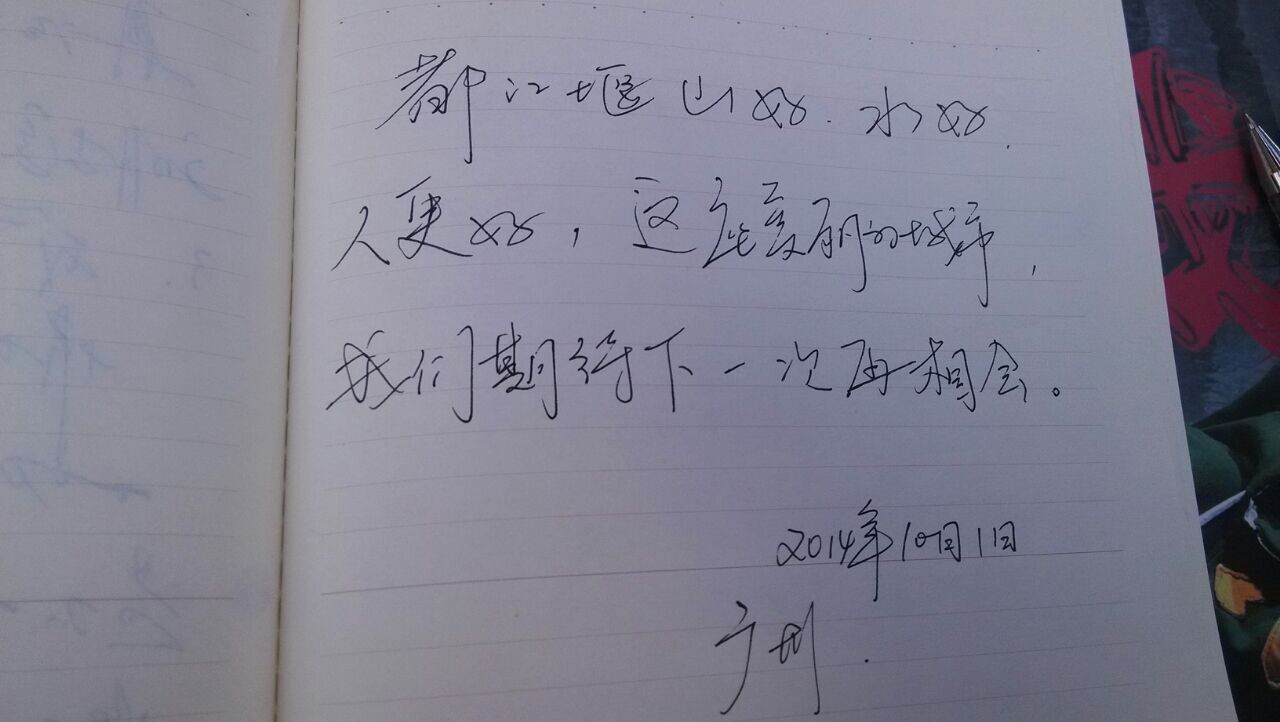 都江堰山好.水好.
人更好,这座美丽的城市,
我们期待下一次再相会。
2014年10月1日
广州.